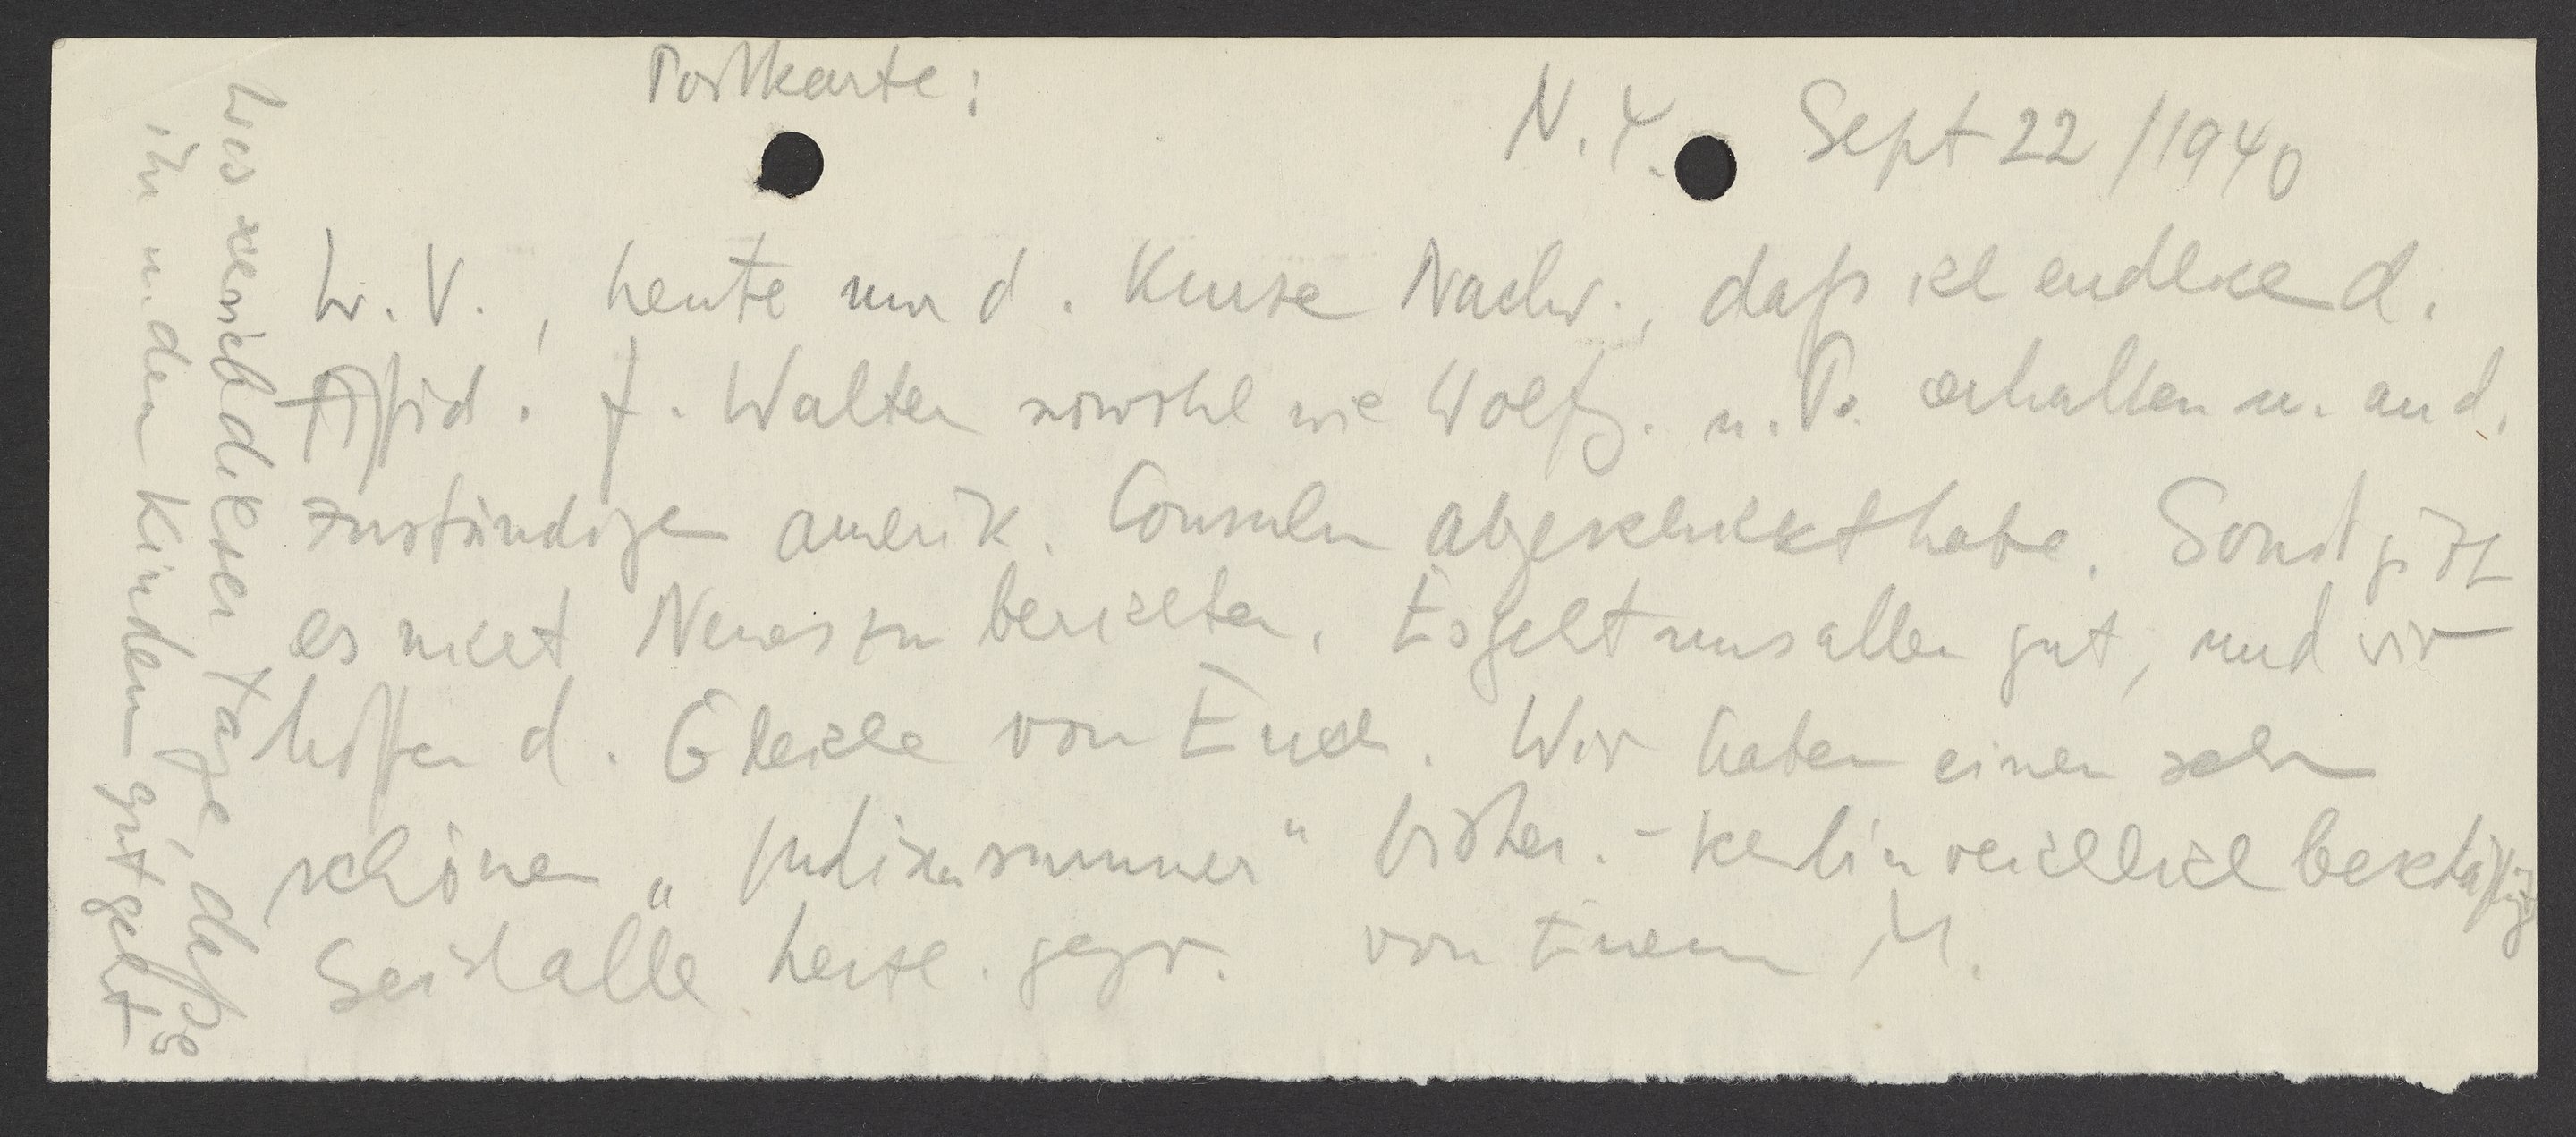 Postkarte:
N. Y. Sept 22/1940
L. V., heute nur d. kurze Nachr., daß ich endlich d.
Affid. f. Walter sowohl wie Wolfg. u. P. erhalten u. an d.
zuständigen amerik. Consuln abgeschickt habe. Sonst gibt
es nicht Neues zu berichten. Es geht uns allen gut, und wir
hoffen d. Gleiche von Euch. Wir haben einen sehr
schönen „Indiansummer" bisher. - bin reichlich beschäftigt
Seid alle herzl. gegr. von Eurem M.
Lies schrieb dieser Tage, daß es
ihr u. den Kindern gut geht.